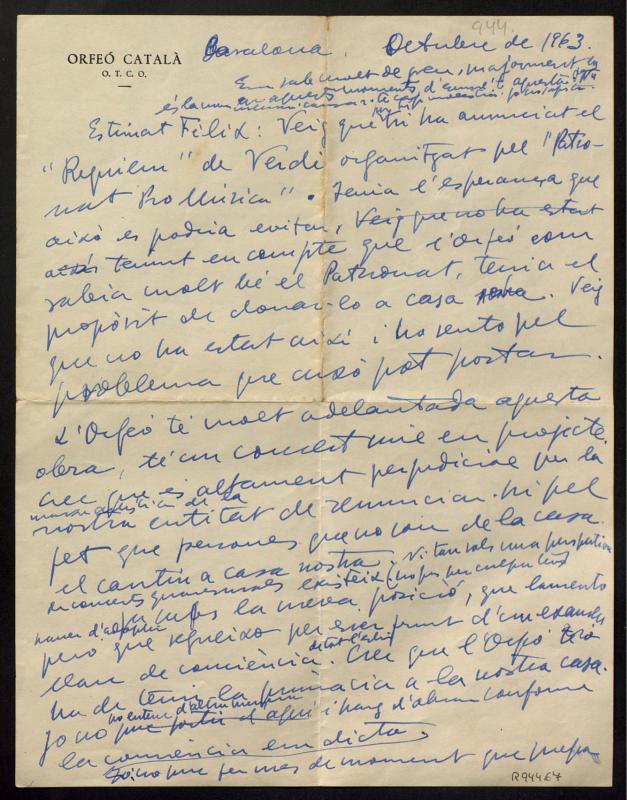 944.
ORFEÓ CATALÀ
O. T. C. O.
Barcelona, Octubre de 1963.
Em sap molt de greu, majorment en
aquests moments, d'
Estimat Fèlix: Veig que hi ha anunciat el
"Requiem" de Verdi organitzat pel "Patro-
nat Pro Música". Tenia l'esperança que
això es podria evitar, Veig que no ha estat
tenint en compte que l'Orfeó com
sabia molt bé el Patronat, tenia el
propòsit de donar-lo a casa nostra. Veig
que no ha estat així i ho sento pel
problema que això pot portar.
L'Orfeó té molt adelantada aquesta
obra, té un concert més en projecte.
Crec que és altament perjudicial per la
marxa artística de la
nostra entitat de renunciar-hi pel
fet que persones que no son de la casa
el cantin a casa nostra. Ni tan sols una perspectiva
de concerts existeix (no pas per culpa teva)
la meva posició, que lamento
haver d'adoptar
però que segueixo per ésser fruit d'un examen
clar de consciència. Crec que l'Orfeó
ha de tenir la primacia a la nostra casa.
Jo no puc sortir d'aquí i haig d'obrar conforme
la consciència em dicta.
Jo no puc fer més de moment que
R94467